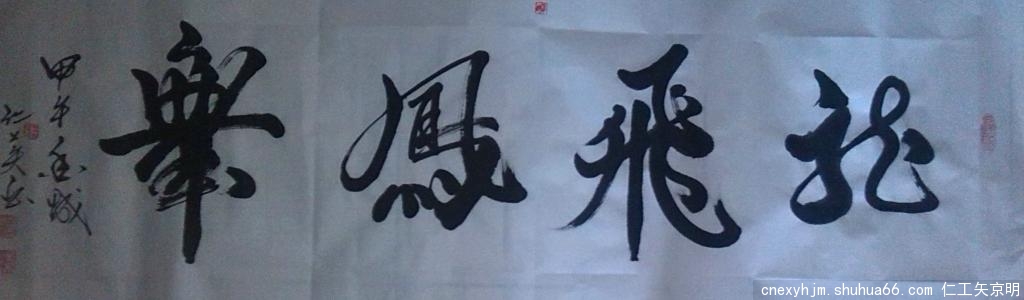 龍飛鳳舞
甲午
cnexyhjm.shuhua66.com 仁工矢京明